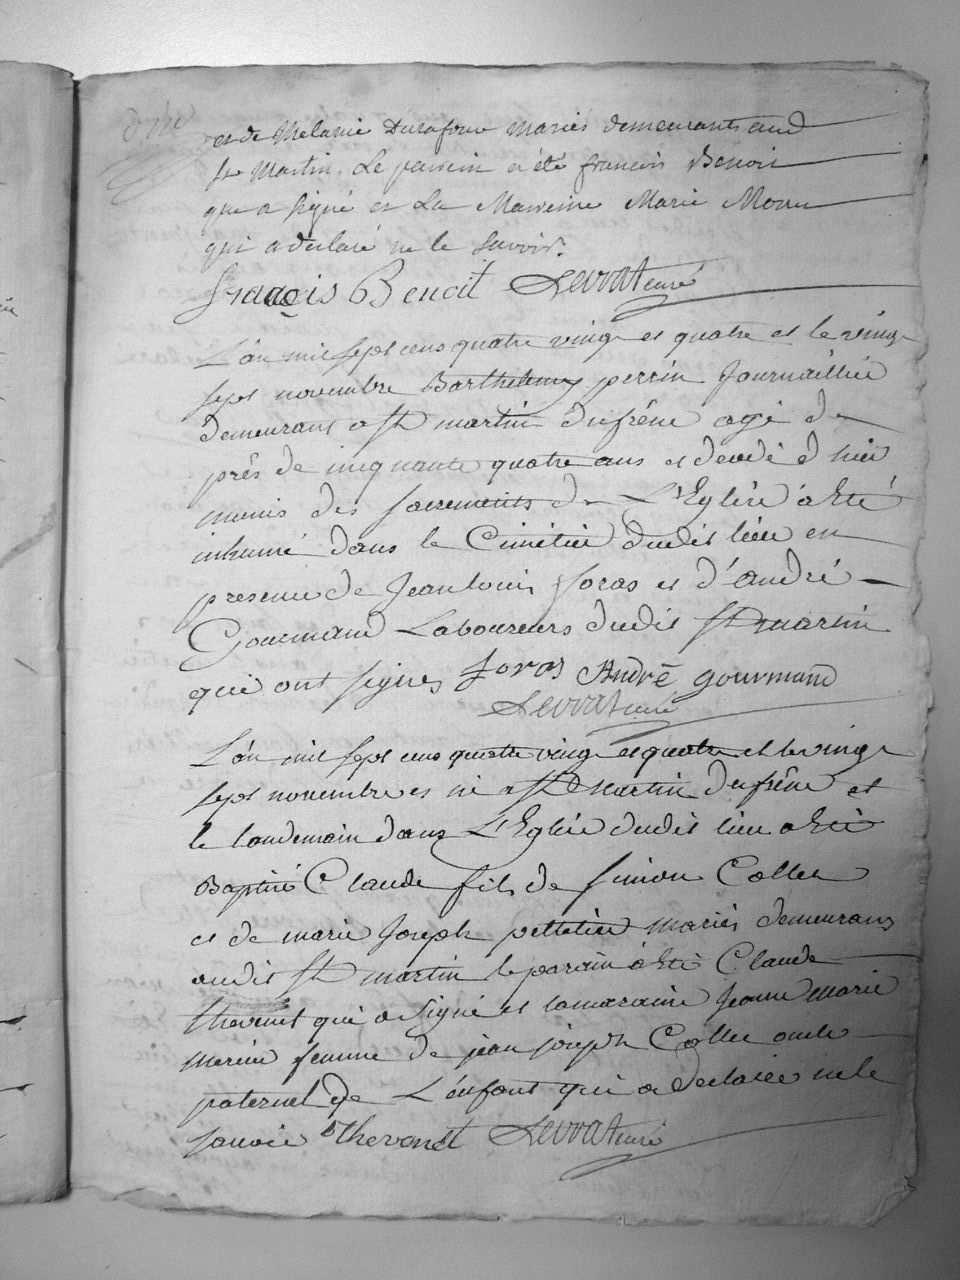 et de Melanie Durafour mariés demeurants aud
St Martin. Le parrein a été francois Benoit
que a signé et La Marreine Marie Monu
qui a declaré ne le savoir.
françois Benoit Levrat curé
L'an mil sept cens quatre vingt et quatre et le vingt
sept novembre Barthelemy perrin Journaillié
demeurant a St martin dufrêne agé de
prés de cinquante quatre ans et decedé d'hier
munis des sacrements de L'Eglise à Eté
inhumé dans le Cimetier dudit lieu en
presence de Jean louis foras et d'andré
Gourmand Laboureurs dudit St martin
qui ont signes foras André gourmand
Levrat curé
L'an mil sept cens quatre vingt et quatre et le vingt
sept novembre est né a St Martin dufrêne et
le landemain dans L'Eglise dudit lieu a Eté
Baptisé Claude fils de Simon Collet
et de marie Joseph pelletier mariés demeurans
audit St martin le parain à Eté Claude
thevenet qui a signé et la maraine Jeanne Marie
femme de jean joseph Collet oncle
paternel de L'enfant qui a declarée ne le
savoir Thevenet Levrat curé